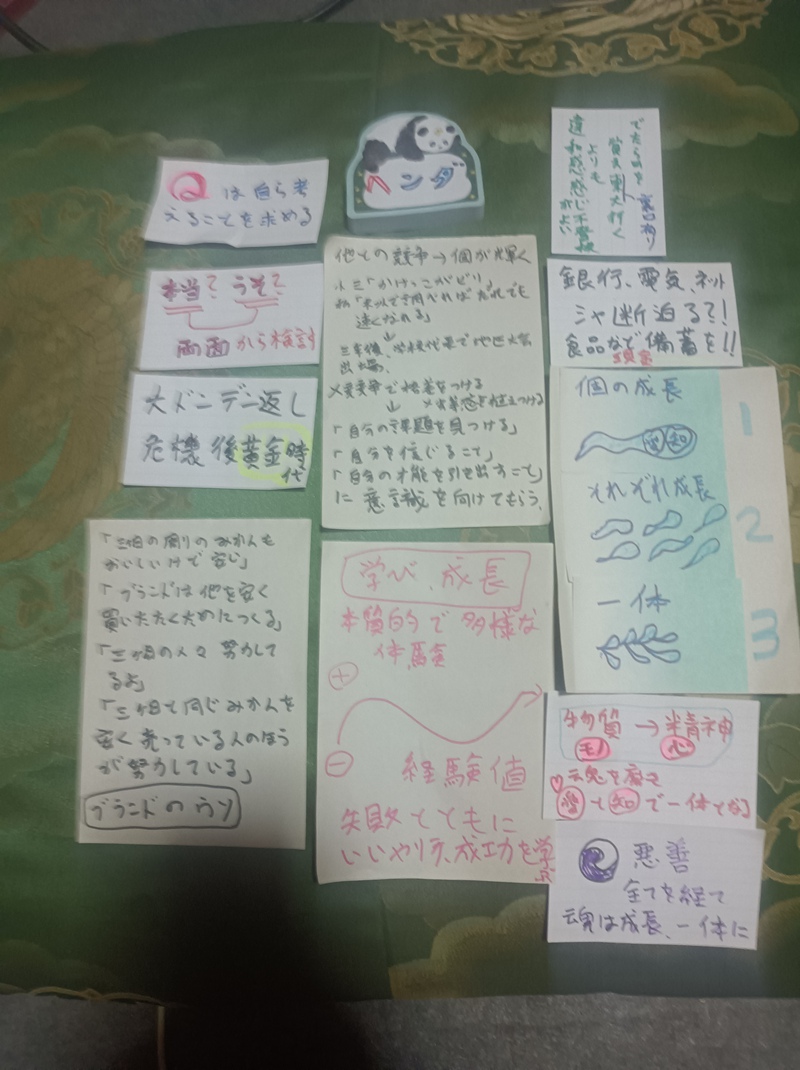 ヘンダ
Qは自ら考
えることを求める
本当?うそ?
両面から検討
大ドンデン返し
危機後黄金時代
「三ヶ日の周りのみかんも
おいしいけど安い」
「ブランドは他を安く
買いたたくためにつくる」
「三ヶ日の人々努力して
るよ」
「三ヶ日と同じみかんを
安く売っている人のほう
が努力している」
ブランドのウソ
他との競争→個が輝く
小三「かけっこがビリ」
私「ネットで調べればだれでも
速くなれる」
↓
三年後、学校代表で地区大会
出場
×競争で格差をつける
↓
「自分の課題を見つける」
「自分を信じること」
「自分の才能を引き出すこと」
に意識を向けてもらう。
学び、成長
本質的で多様な
体験
+
-
経験値
失敗とともに
いいやり方、成功を学ぶ
よりも
違和感感じ
がよい
銀行、電気、ネット
シャ断迫る?!
食品など備蓄を!!
現金
個の成長
1
愛知
それぞれ成長
2
一体
3
物質→精神
モノ 心
魂を磨き
愛と知で一体となる
悪善
全てを経て
魂は成長、一体に